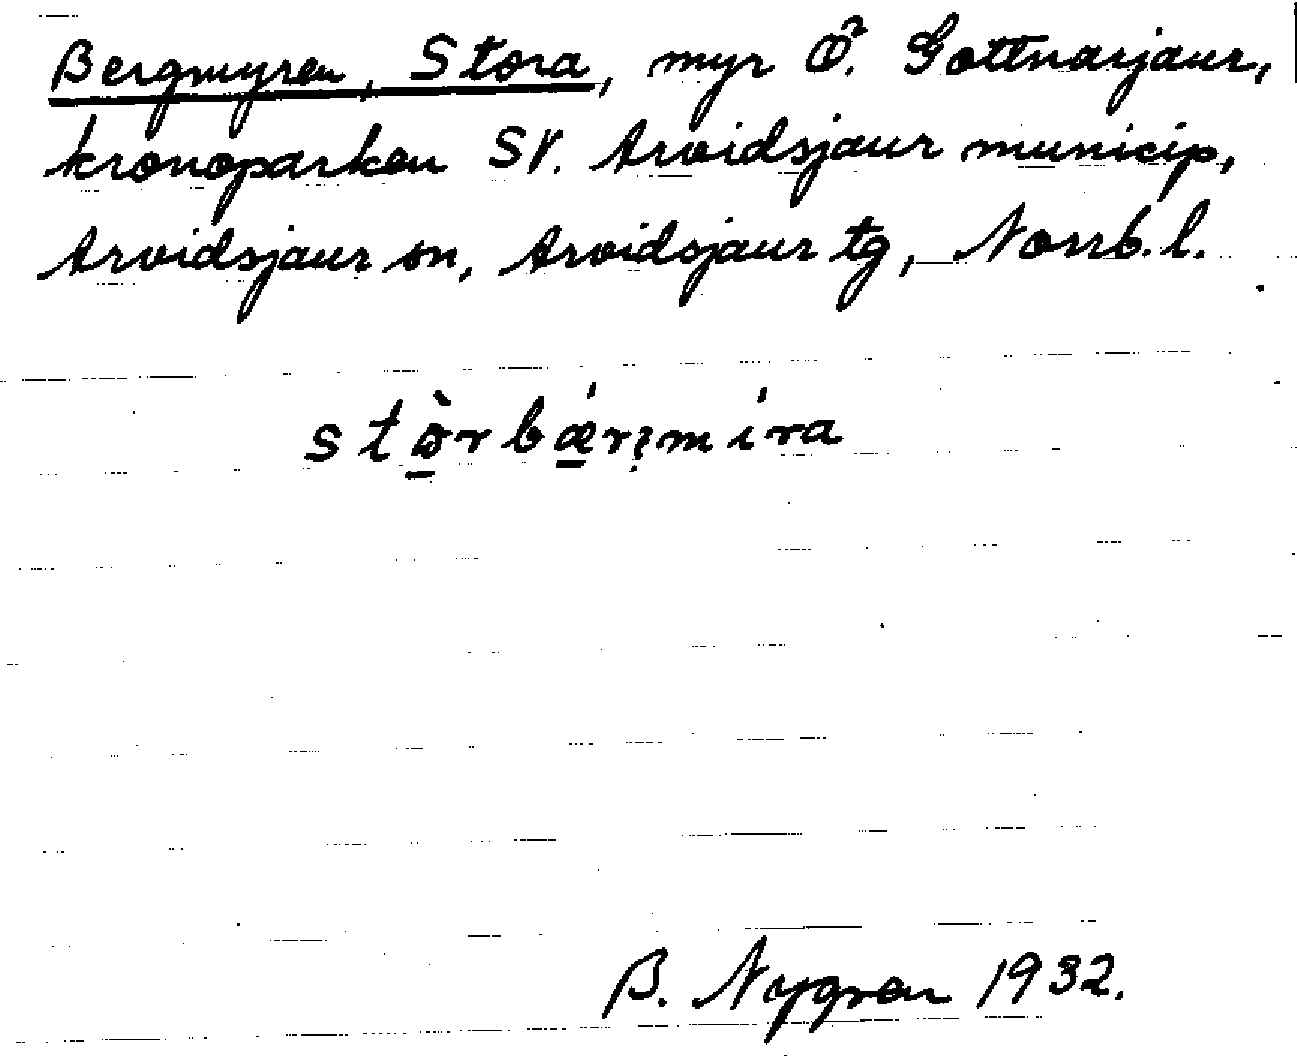 Bergmyren, Stora, myr Ö. Gottnarjaur,
kronoparken SV. Arvidsjaur municip,
Arvidsjaur sn, Arvidsjaur tg, Norrb. l.
stòrbǽrʒmíra
B. Nygren 1932.